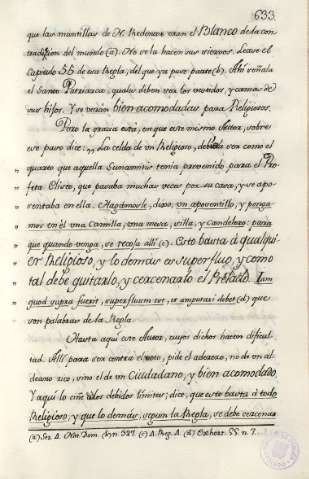 633.
que las mantillas de N. Redemor eran el Blanco de la con
tradizion del mundo (a). No ve la hacen sus vicarios. Leave el
Capitulo 55 de esa Regla, del que ya puse parte (b). Ahi señala
el Santo Patriarca, quales deben ser los vestidos, y camas de
sus hijos. Y se verán bien acomodadas para Religiosos.
Pero la gracia está, en que este mismo Autor, sobre
ese pun dice: La celda de un Religioso, debe ser como el
quarto que aquella Sunamitis tenia prevenido para el Pro
feta Eliseo, que pasaba muchas veces por su casa, y se apo
sentaba en ella. Hagamosle, dixo, un aposentillo, y ponga
mos en él una Camilla, una mesa, silla, y candelero: para
que quando venga, se recoja allí (c). Esto basta á qualqui
er Religioso, y lo demás es superfluo, y como
tal debe quitarlo, y cercenarlo el Prelado. Iam
quod supra fuerit, superfluum est, et amputari debet (d) que
son palabras de la Regla.
Hasta aqui este Autor, cuyos dichos hacen dificul
tad. Allí para esa contra el voto, pide el adorazo, no de un al
deano rico, sino el de un Ciudadano, y bien acomodado.
Y aqui lo ciñe a los debidos limites; dice, que esto basta á todo
Religioso; y que lo demás, segun la Regla, se debe cercenar
(a) Ser. A. Nat. Dom. (b) n. 327. (c) 4. Reg. 4. (d) Ex heat. 55. n. 7.